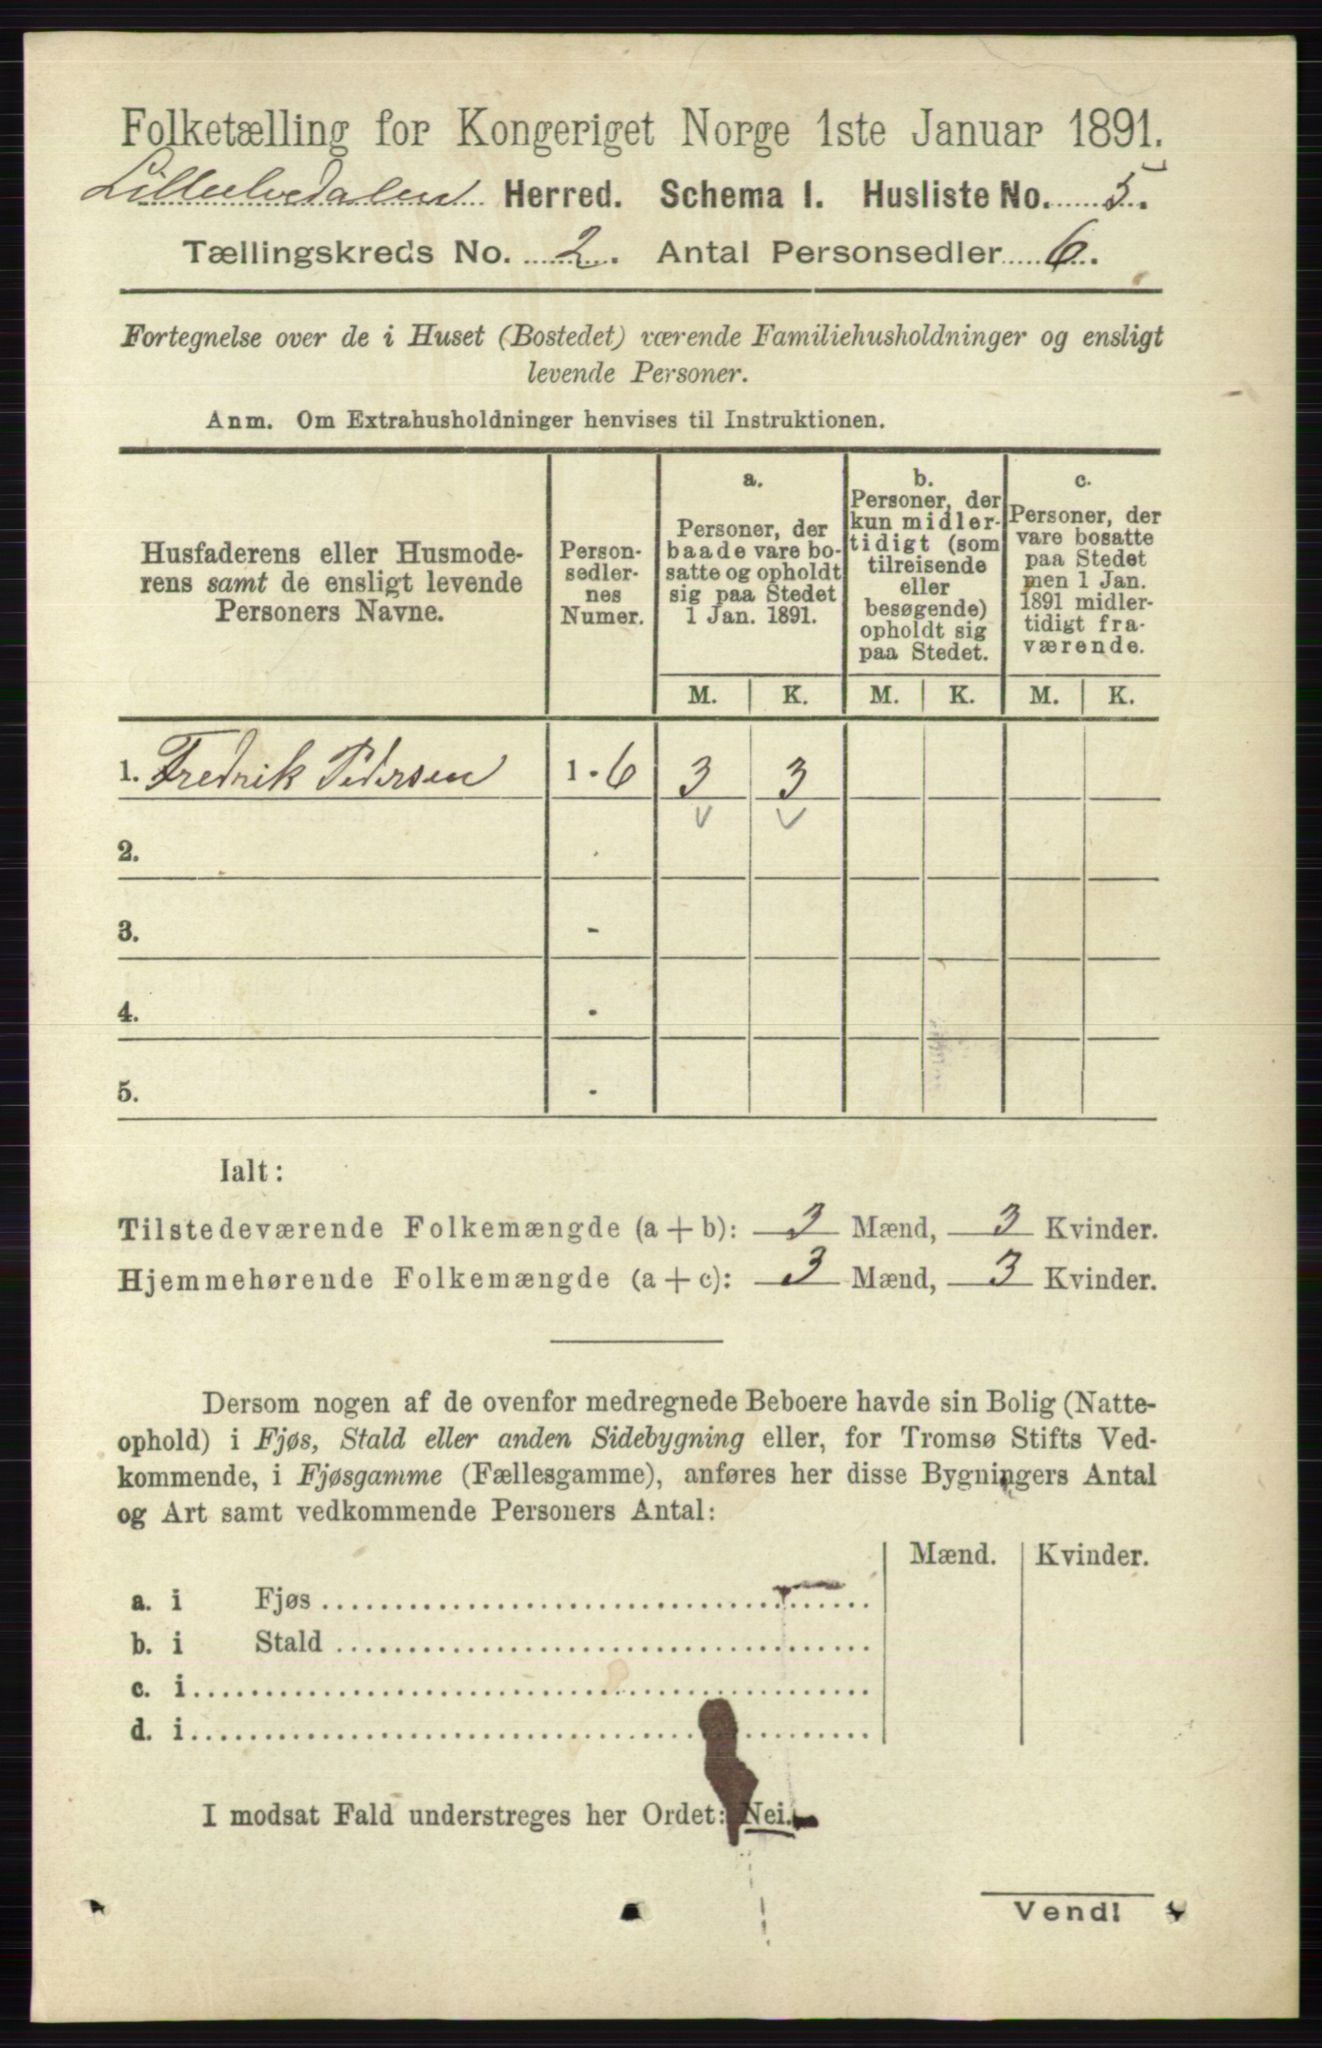 Folketælling for Kongeriget Norge 1ste Januar 1891.
Lilleelvedalen Herred. Schema I. Husliste No. 5.
Tællingskreds No. 2. Antal Personsedler 6.
Fortegnelse over de i Huset (Bostedet) værende Familiehusholdninger og ensligt
levende Personer.
Anm. Om Extrahusholdninger henvises til Instruktionen.
Husfaderens eller Husmode-
rens samt de ensligt levende
Personers Navne.
Person-
sedler-
nes
Numer.
a.
Personer, der
baade vare bo-
satte og opholdt
sig paa Stedet
1 Jan. 1891.
b.
Personer, der
kun midler-
tidigt (som
tilreisende
eller
besøgende)
opholdt sig
paa Stedet.
c.
Personer, der
vare bosatte
paa Stedet
men 1 Jan.
1891 midler-
tidigt fra-
værende.
M. K. M. K. M. K.
1. Fredrik Pedersen 1 - 6 3 3
2.
3. -
4. -
5. -
Ialt:
Tilstedeværende Folkemængde (a + b): 3 Mænd, 3 Kvinder.
Hjemmehørende Folkemængde (a + c): 3 Mænd, 3 Kvinder.
Dersom nogen af de ovenfor medregnede Beboere havde sin Bolig (Natte-
ophold) i Fjøs, Stald eller anden Sidebygning eller, for Tromsø Stifts Ved-
kommende, i Fjøsgamme (Fællesgamme), anføres her disse Bygningers Antal
og Art samt vedkommende Personers Antal:
Mænd. Kvinder.
a. i Fjøs
b. i Stald
c. i
d. i
I modsat Fald understreges her Ordet: Nei.
Vend!